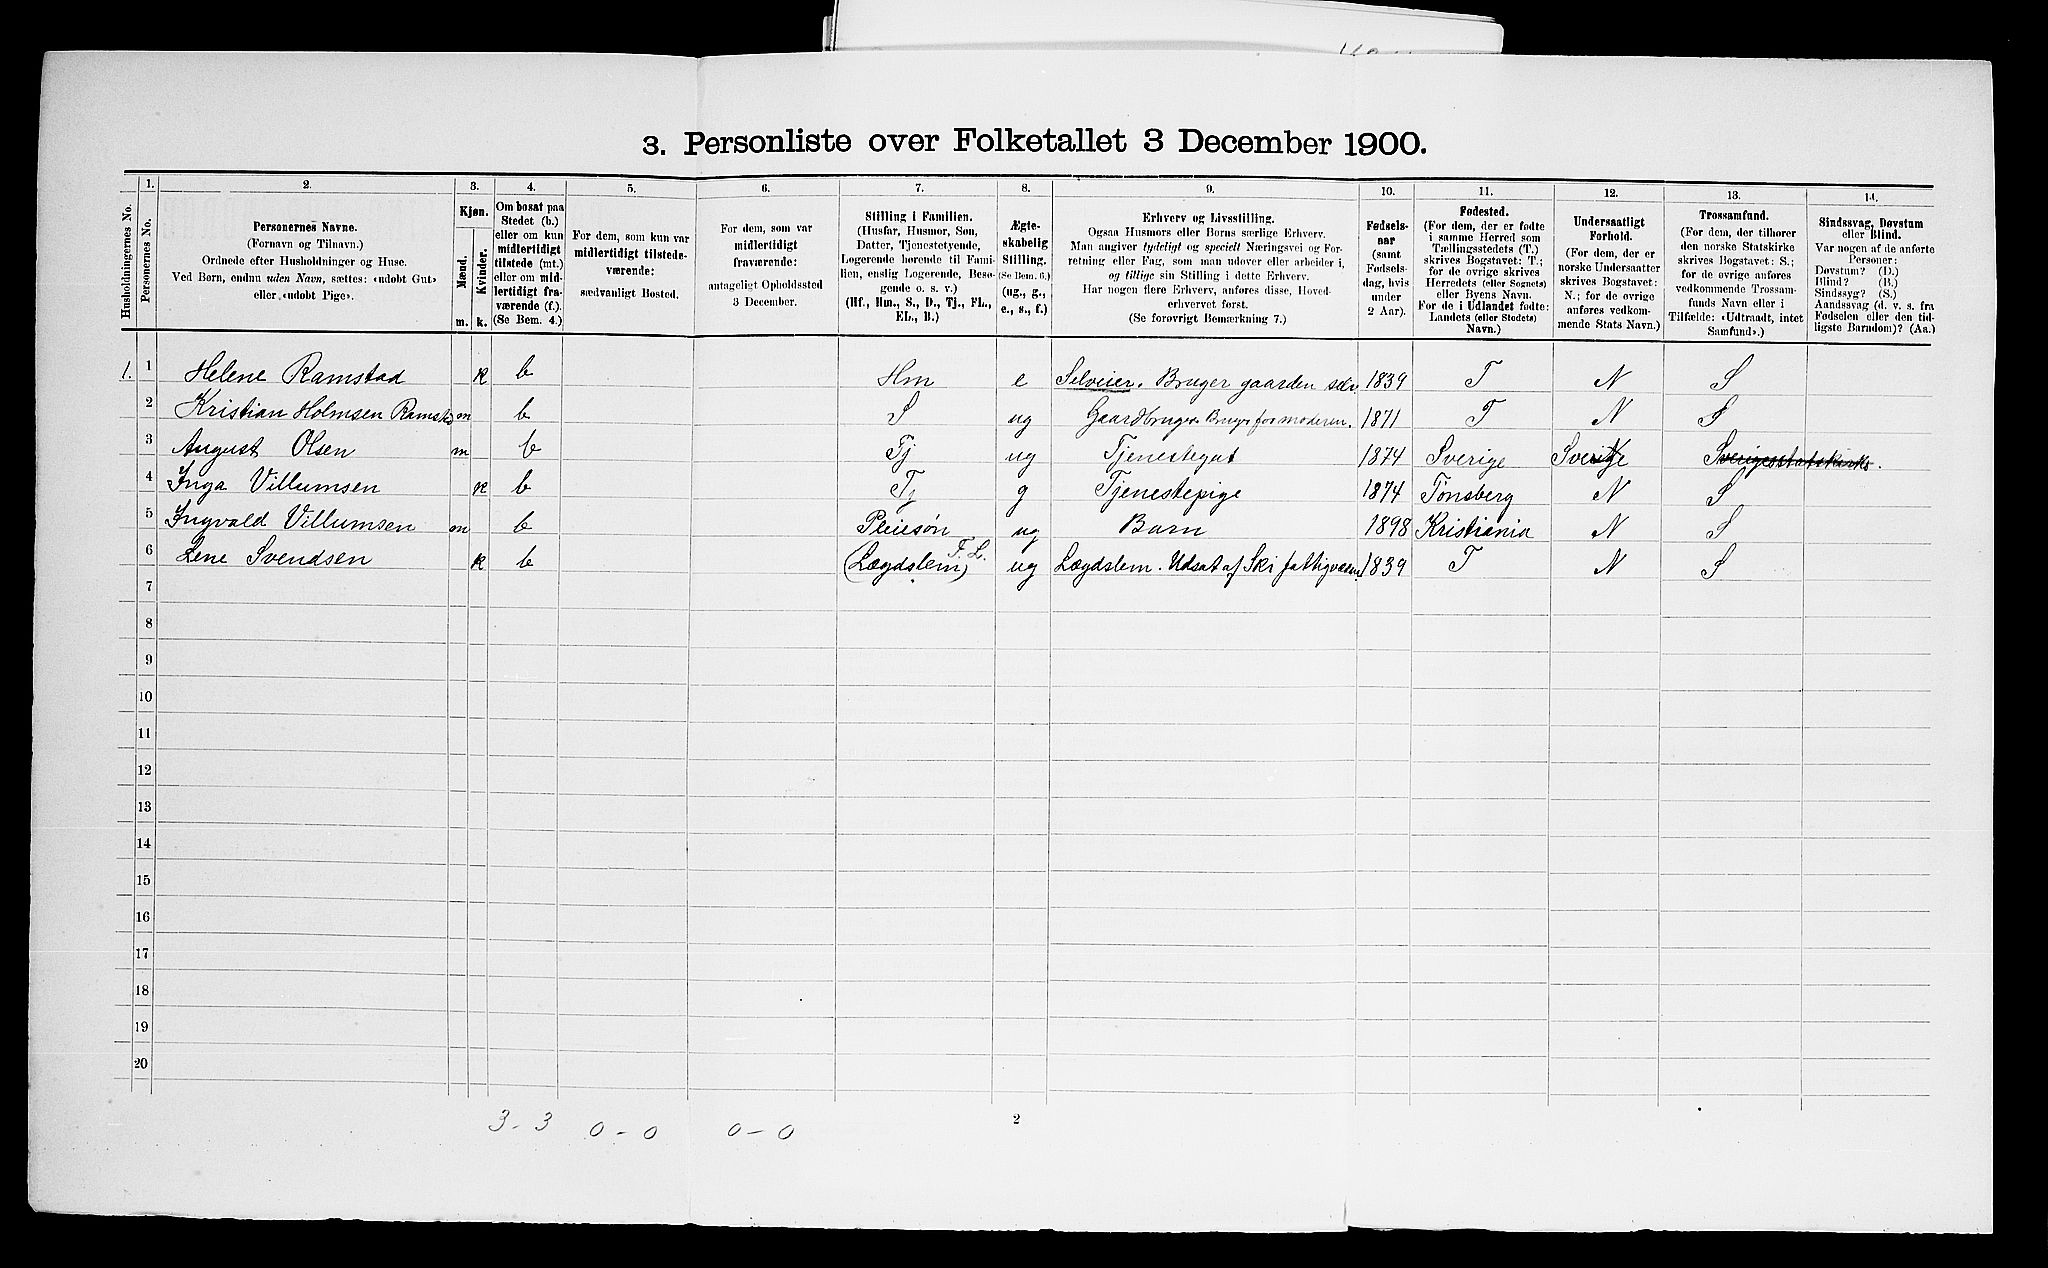 3. Personliste over Folketallet 3 December 1900.
Husholdningernes No.
1.
Personernes No.
2.
Personernes Navne.
(Fornavn og Tilnavn.)
Ordnede efter Husholdninger og Huse.
Ved Børn, endnu uden Navn, sættes: «udøbt Gut»
eller «udøbt Pige».
3.
Kjøn.
Mænd.
Kvinder.
m. k.
4.
Om bosat paa
Stedet (b.)
eller om kun
midlertidigt
tilstede (mt.)
eller om mid-
lertidigt fra-
værende (f.).
(Se Bem. 4.)
5.
For dem, som kun var
midlertidigt tilstede-
værende:
sædvanligt Bosted.
6.
For dem, som var
midlertidigt
fraværende:
antageligt Opholdssted
3 December.
7.
Stilling i Familien.
(Husfar, Husmor, Søn,
Datter, Tjenestetyende,
Logerende hørende til Fami-
lien, enslig Logerende, Besø-
gende o. s. v.)
(Hf., Hm., S., D., Tj., FL.,
EL., B.)
8.
Ægte-
skabelig
Stilling.
(Se Bem. 6.)
(ug., g.,
e., s., f.)
9.
Erhverv og Livsstilling.
Ogsaa Husmors eller Børns særlige Erhverv.
Man angiver tydeligt og specielt Næringsvei og For-
retning eller Fag, som man udøver eller arbeider i,
og tillige sin Stilling i dette Erhverv.
Har nogen flere Erhverv, anføres disse, Hoved-
erhvervet først.
(Se forøvrigt Bemærkning 7.)
10.
Fødsels-
aar
(samt
Fødsels-
dag, hvis
under
2 Aar).
11.
Fødested.
(For dem, der er fødte
i samme Herred som
Tællingsstedets (T.)
skrives Bogstavet: T.;
for de øvrige skrives
Herredets (eller Sognets)
eller Byens Navn.
For de i Udlandet fødte:
Landets (eller Stedets)
Navn.)
12.
Undersaatligt
Forhold.
(For dem, der er
norske Undersaatter
skrives Bogstavet:
N.; for de øvrige
anføres vedkom-
mende Stats Navn.)
13.
Trossamfund.
(For dem, der tilhører
den norske Statskirke
skrives Bogstavet: S.;
for de øvrige anføres
vedkommende Trossam-
funds Navn eller i
Tilfælde: «Udtraadt, intet
Samfund».)
14.
Sindssvag, Døvstum
eller Blind.
Var nogen af de anførte
Personer:
Døvstum? (D.)
Blind? (B.)
Sindssyg? (S.)
Aandssvag (d. v. s. fra
Fødselen eller den tid-
ligste Barndom)? (Aa.)
1. 1 Helene Ramstad k b Hm e Selveier. Bruger gaarden selv 1839 T N S
2 Kristian Holmsen Ramstad m b S ug Gaardbruger. Bruger for moderen. 1871 T N S
3 August Olsen m b Tj ug Tjenestegut 1874 Sverige Sverige Sverigesstatskirke.
4 Inga Villumsen k b Tj g Tjenestepige 1874 Tønsberg N S
5 Ingvald Villumsen m b Pleiesøn ug Barn 1898 Kristiania N S
6 Lene Svendsen k b (Lægdslem) F. L. ug Lægdslem. Udsat af Ski fattigvæsen 1839 T N S
7
8
9
10
11
12
13
14
15
16
17
18
19
20
3 - 3 0 - 0 0 - 0
2